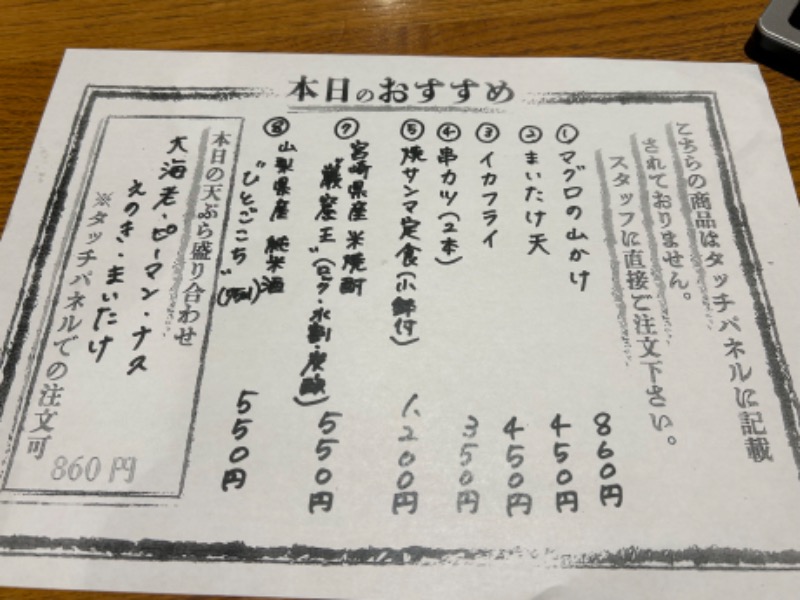 本日のおすすめ
こちらの商品はタッチパネルに記載
されておりません。
スタッフに直接ご注文下さい。
① マグロの山かけ 860円
② まいたけ天 450円
③ イカフライ 450円
④ 串カツ(2本) 350円
⑤ 焼サンマ定食(小鉢付) 1,200円
⑦ 宮崎県産 米焼酎
"巌窓王"(ロック・水割・炭酸) 550円
⑧ 山梨県産 純米酒
"ひとごこち" 550円
本日の天ぷら盛り合わせ
大海老・ピーマン・ナス
えのき・まいたけ
※タッチパネルでの注文可
860円